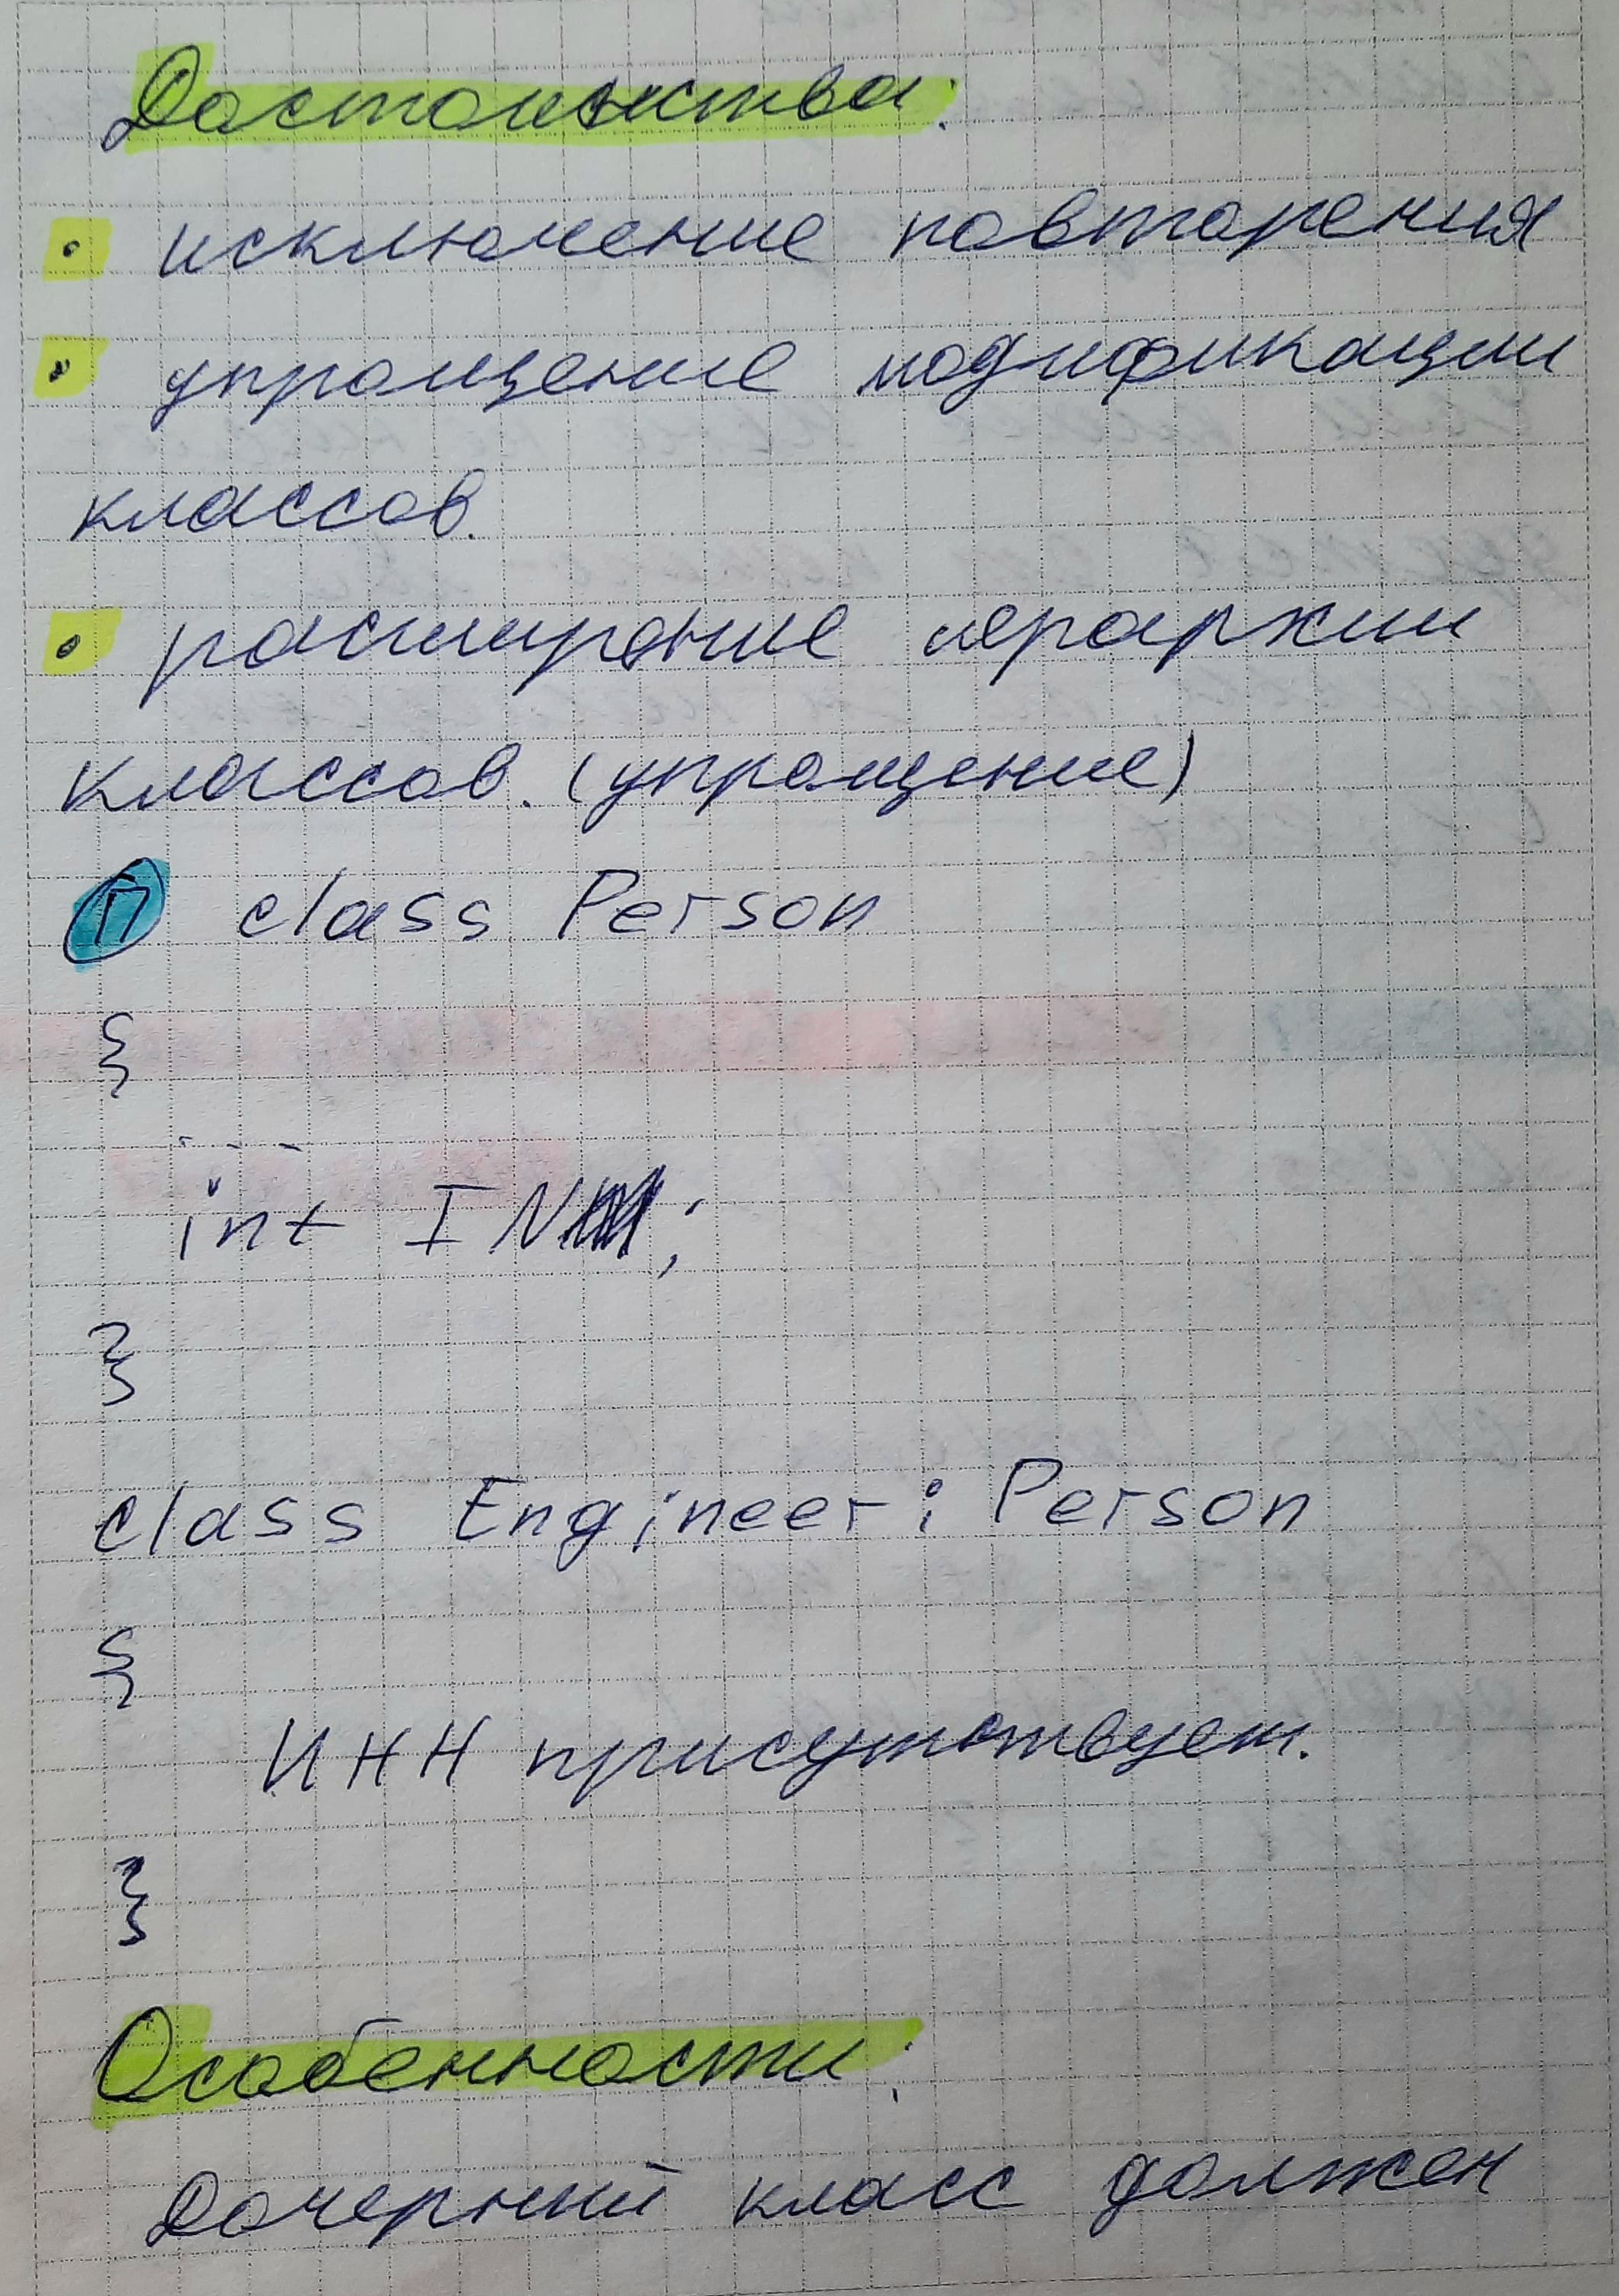 Достоинства:
• исключение повторения
• упрощение модификации
классов.
• расширение иерархии
классов. (упрощение)
П class Person
{
int IN;
}
class Engineer: Person
{
ИНН присутствует.
}
Особенности:
Дочерний класс должен